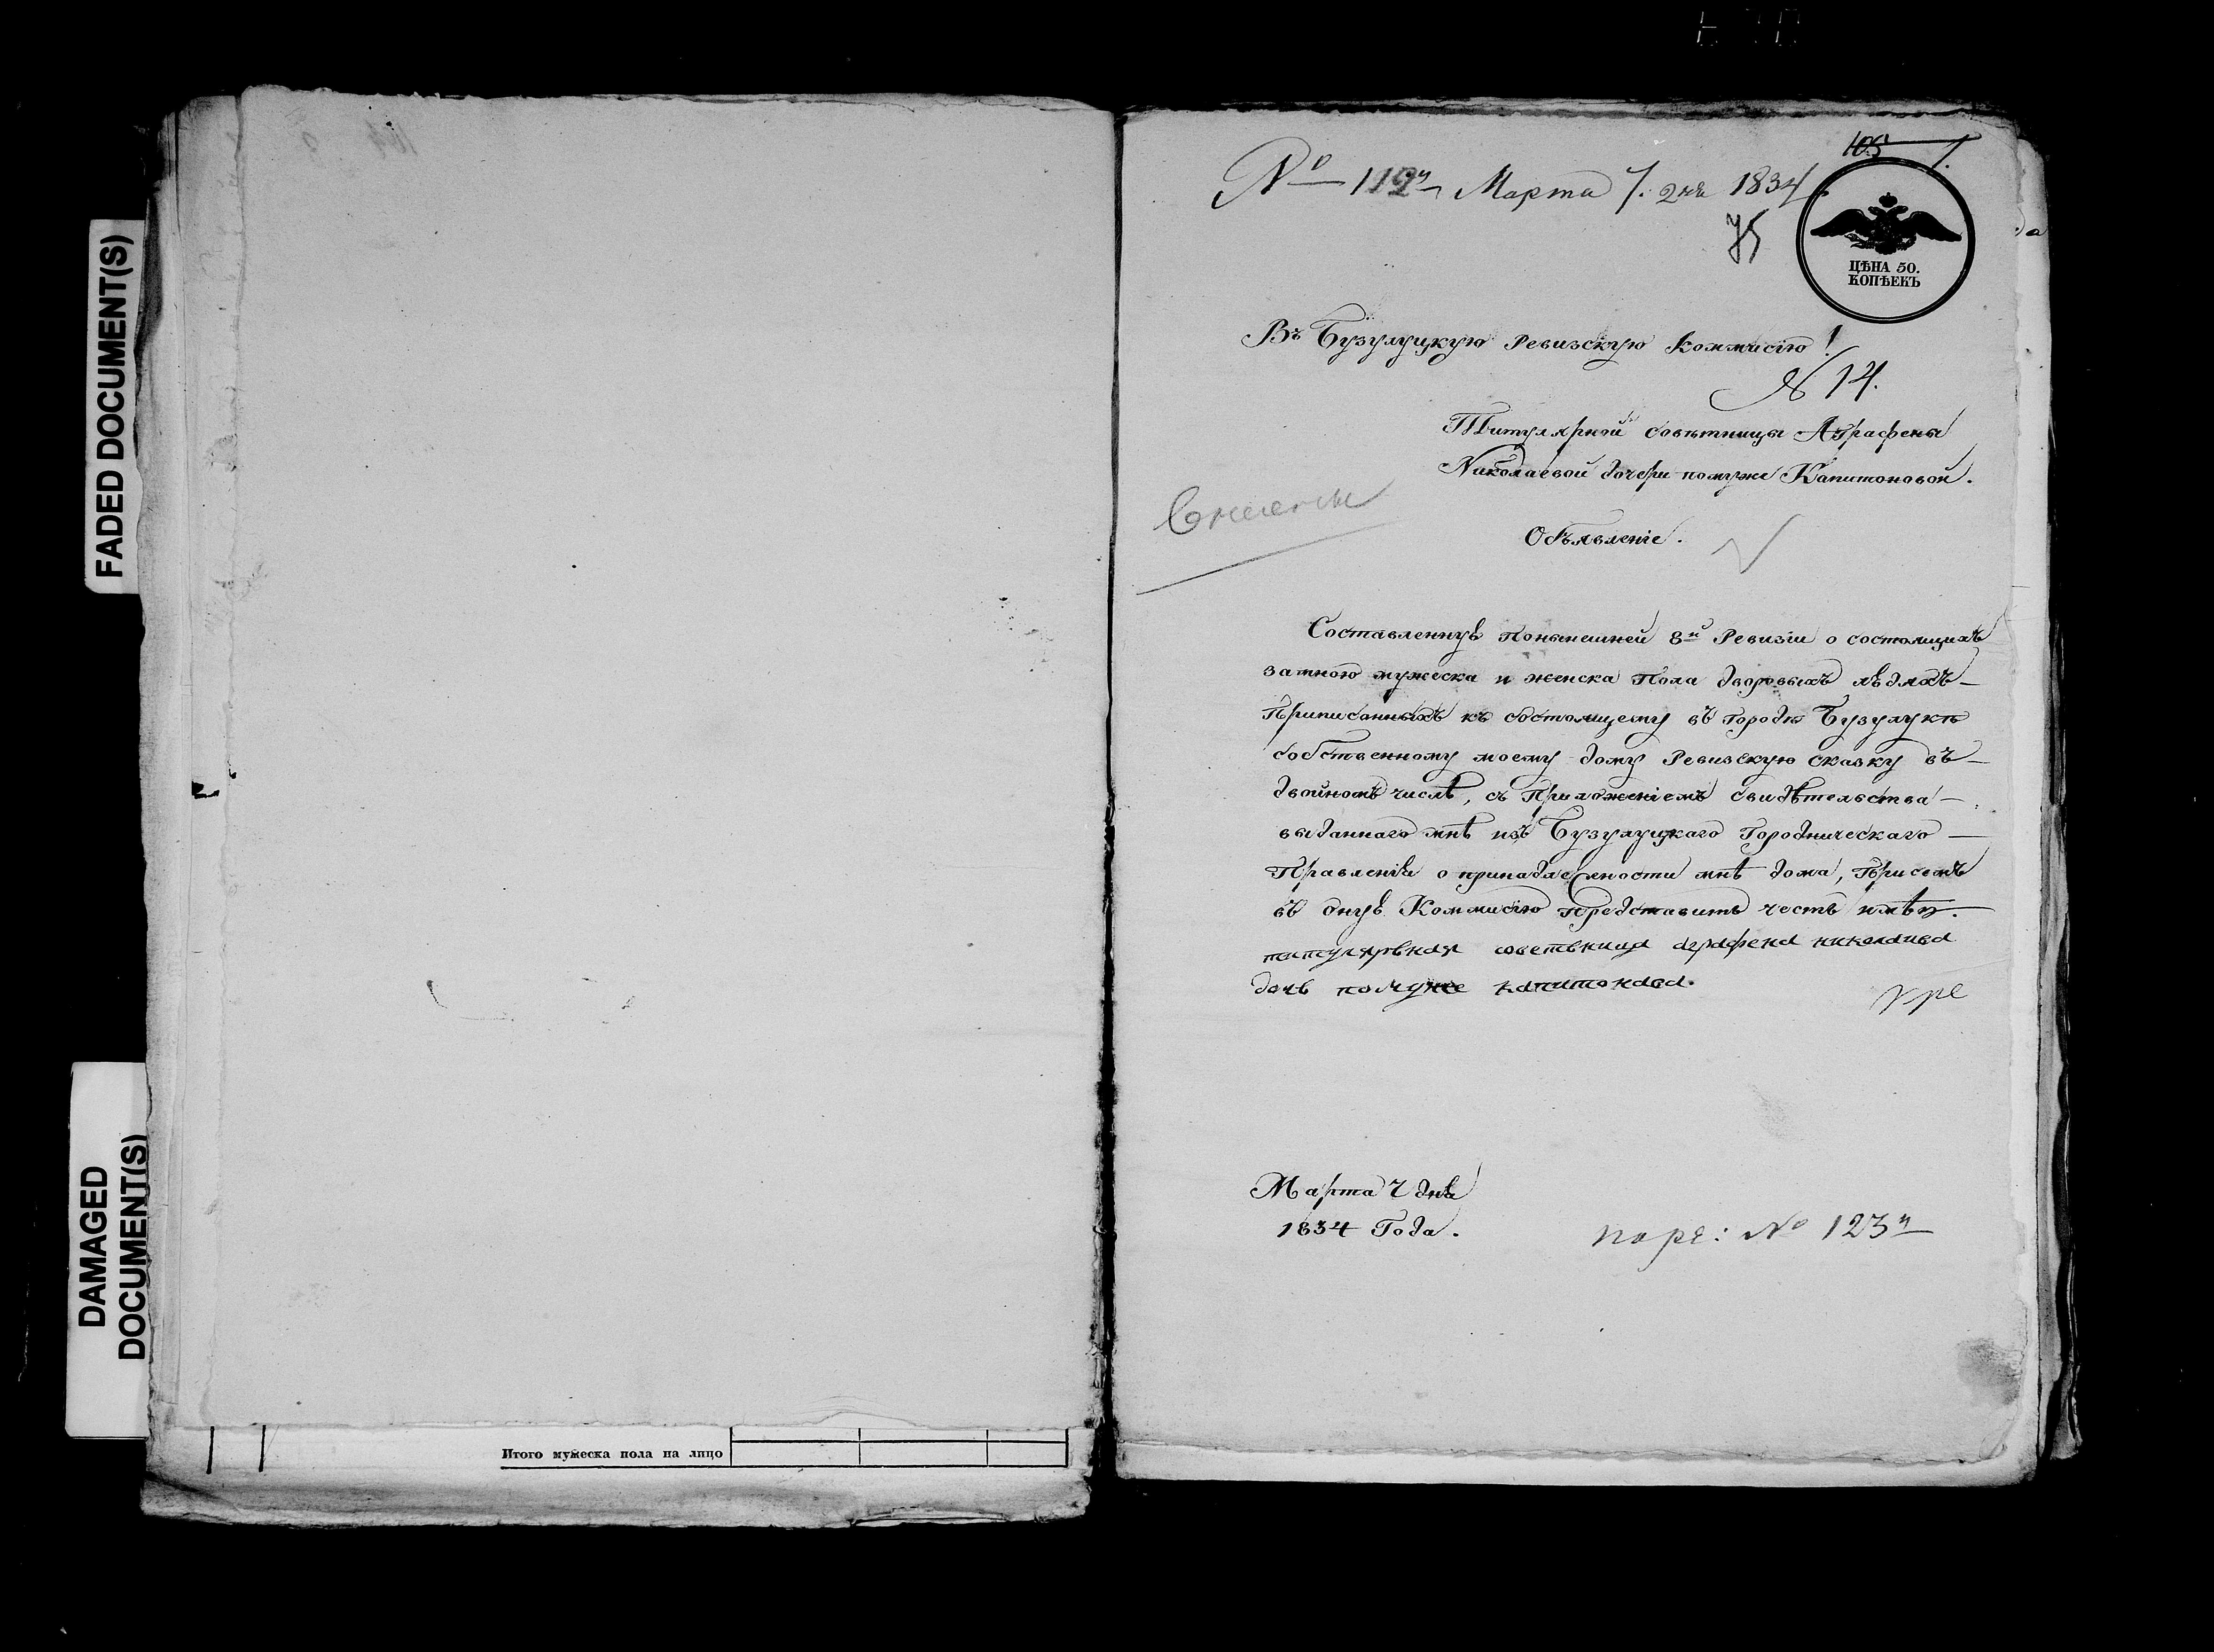 FADED DOCUMENT(S)
DAMAGED
DOCUMENT(S)
Итого мужеска пола на лицо
105
№ 112й Марта 7. дня 1834
ЦѢНА 50.
КОПѢЕКЪ
Въ Бузулуцкую Ревизскую Коммисію!
№ 14.
Титулярной совѣтницы Аграфены
Николаевой дочери помуже Капитоновой.
Объявленіе.
Составленную понынешней 8й Ревизіи о состоящихъ
замною мужеска и женска пола дворовыхъ людяхъ
приписанныхъ къ состоящему въ городѣ Бузулукѣ
собственному моему дому Ревизскую сказку въ
двойномъ числѣ, съ приложеніемъ свидѣтельства
выданнаго мнѣ изъ Бузулуцкаго Городническаго
Правленія о принадлежности мнѣ дома, присемъ
въ оную Коммисію представить честь имѣю.
титулярная советница аграфена николаива
дочь помуже капитонава.
Марта 7 дня
1834 Года.
поре: № 123й